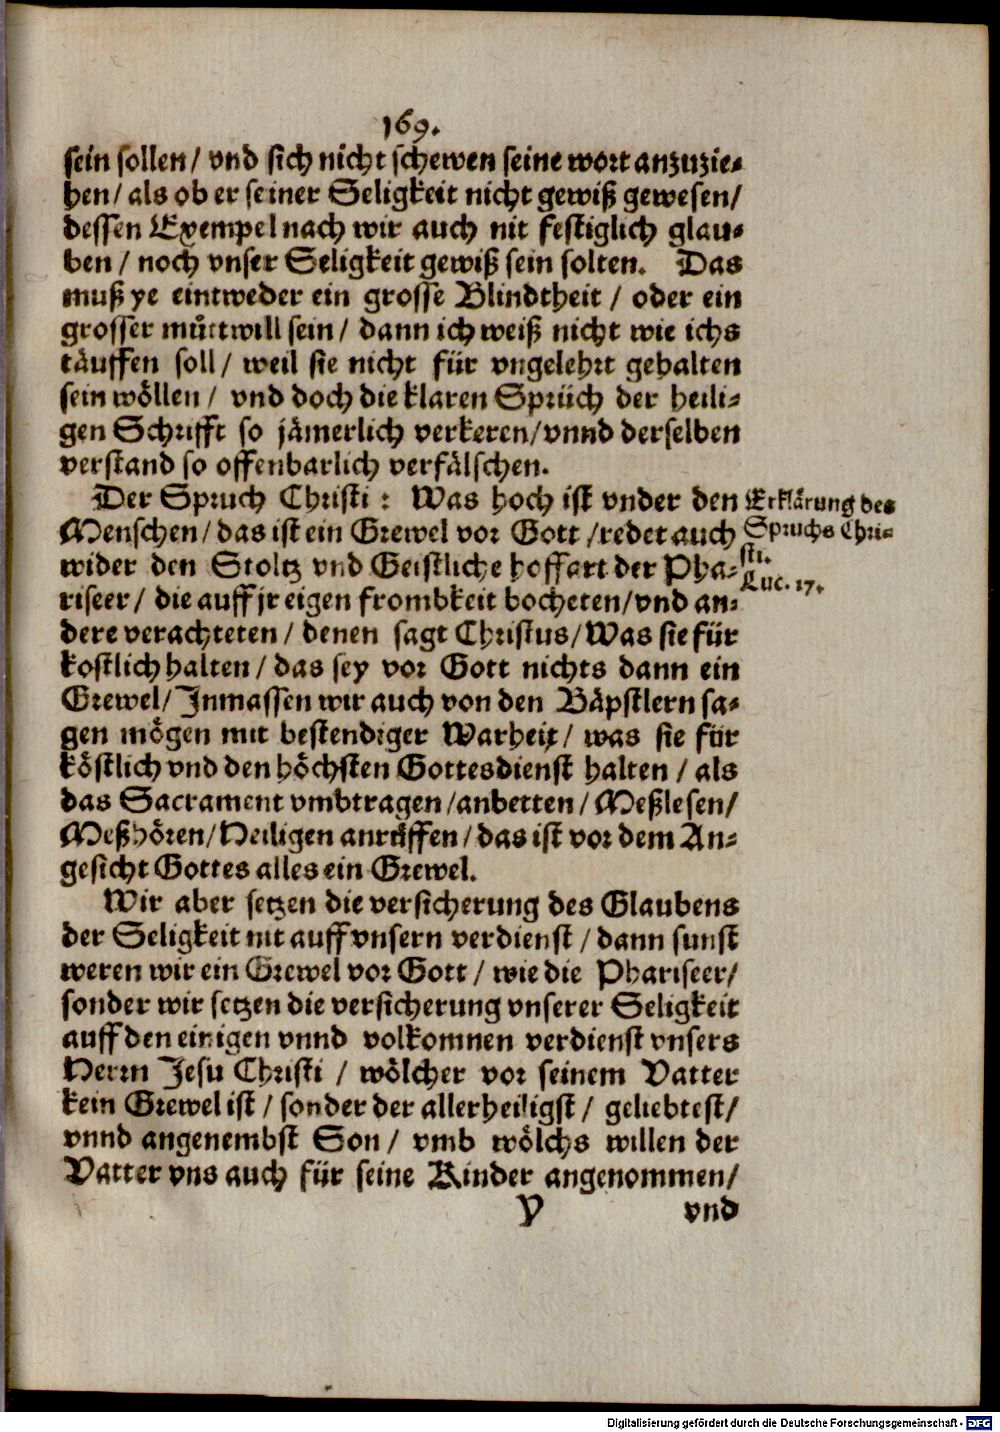 169.
sein sollen / vnd sich nicht schewen seine wort anzuzie-
hen / als ob er seiner Seligkeit nicht gewiß gewesen /
dessen Exempel nach wir auch nit festiglich glau-
ben / noch vnser Seligkeit gewiß sein solten. Das
muß ye eintweder ein grosse Blindtheit / oder ein
grosser můttwill sein / dann ich weiß nicht wie ichs
täuffen soll / weil sie nicht für vngelehrt gehalten
sein wöllen / vnd doch die klaren Sprüch der heili-
gen Schrifft so jämerlich verkeren / vnnd derselben
verstand so offenbarlich verfälschen.
Der Spruch Christi : Was hoch ist vnder den
Menschen / das ist ein Grewel vor Gott / redet auch
wider den Stoltz vnd Geistliche hoffart der Pha-
riseer / die auff jr eigen frombkeit bocheten / vnd an-
dere verachteten / denen sagt Christus / Was sie für
kostlich halten / das sey vor Gott nichts dann ein
Grewel / Inmassen wir auch von den Bäpstlern sa-
gen mögen mit bestendiger Warheit / was sie für
köstlich vnd den höchsten Gottesdienst halten / als
das Sacrament vmbtragen / anbetten / Meßlesen /
Meßhören / Heiligen anrůffen / das ist vor dem An-
gesicht Gottes alles ein Grewel.
Erklärung des
Spruchs Chri-
sti.
Luc. 17.
Wir aber setzen die versicherung des Glaubens
der Seligkeit nit auff vnsern verdienst / dann sunst
weren wir ein Grewel vor Gott / wie die Phariseer /
sonder wir setzen die versicherung vnserer Seligkeit
auff den einigen vnnd volkomnen verdienst vnsers
Herrn Jesu Christi / wölcher vor seinem Vatter
kein Grewel ist / sonder der allerheiligst / geliebtest /
vnnd angenembst Son / vmb wölchs willen der
Vatter vns auch für seine Kinder angenommen /
Y vnd
Digitalisierung gefördert durch die Deutsche Forschungsgemeinschaft - DFG